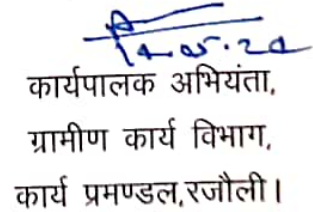 कार्यपालक अभियंता,
ग्रामीण कार्य विभाग,
कार्य प्रमण्डल,रजौली।